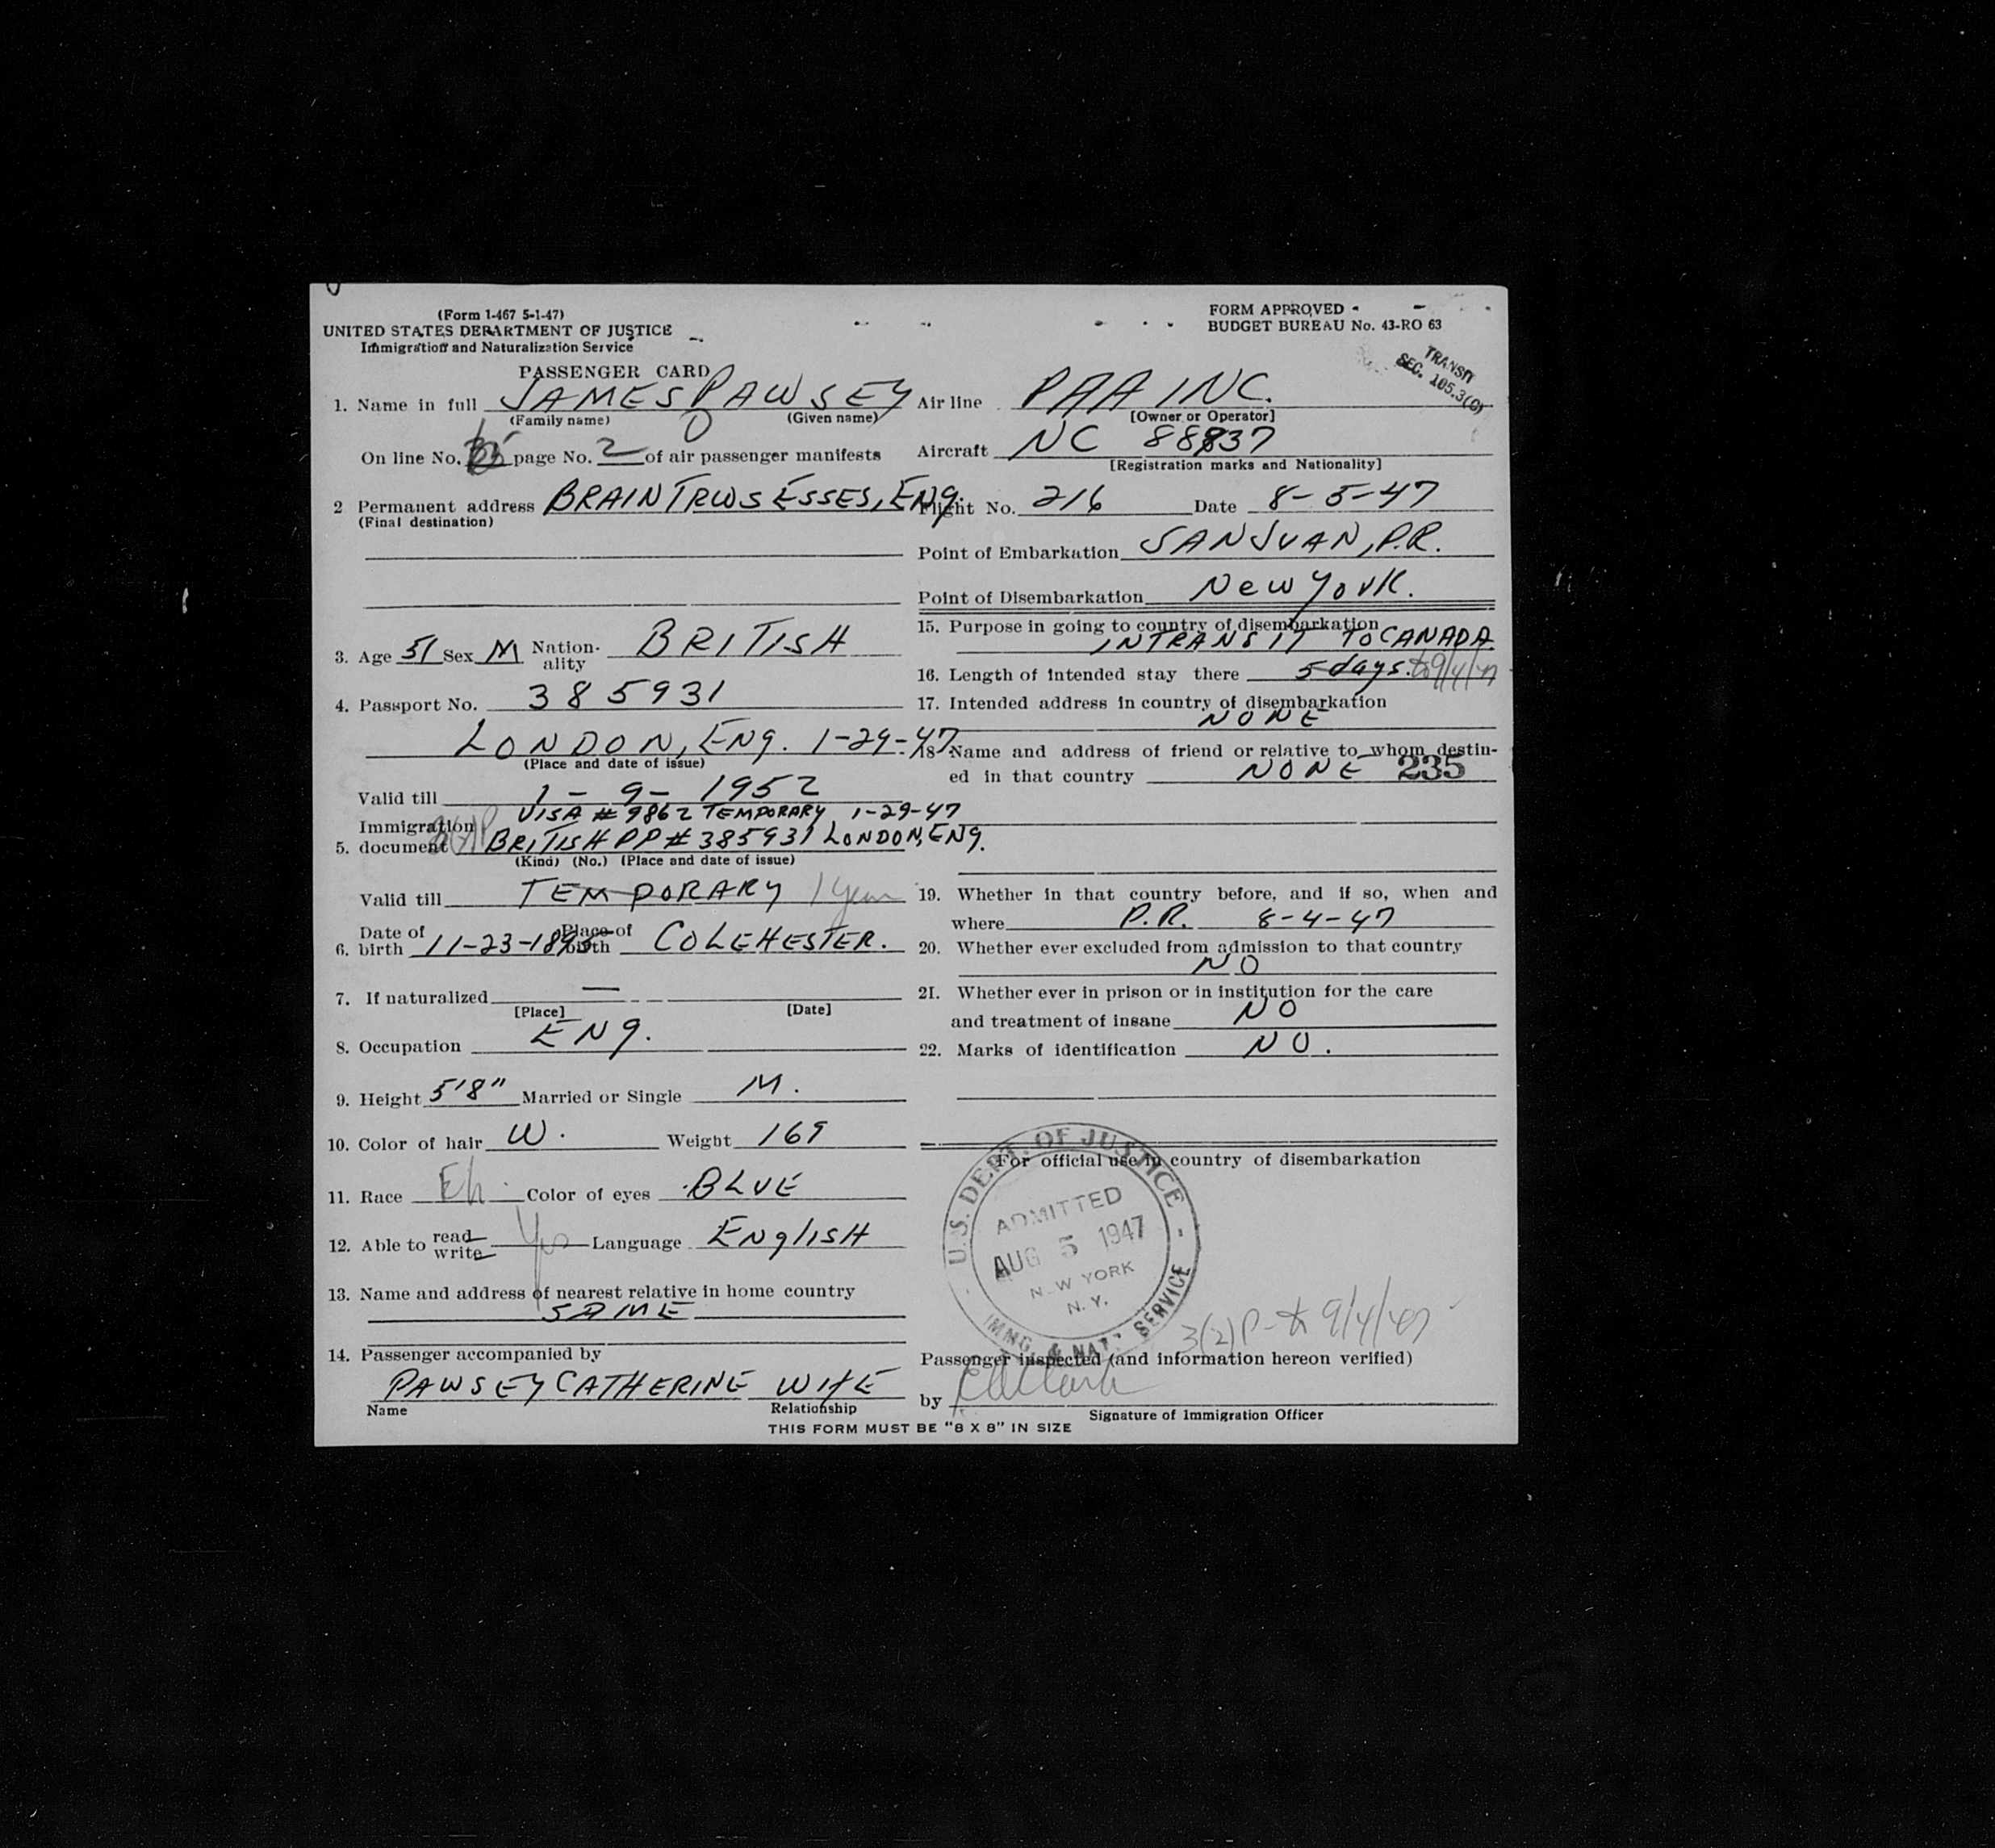 (Form 1-467 5-1-47)
UNITED STATES DEPARTMENT OF JUSTICE
Immigration and Naturalization Service
PASSENGER CARD
FORM APPROVED
BUDGET BUREAU No. 43-RO 63
TRANSIT
SEC. 105.3(C)
1. Name in full JAMES PAWSEY
(Family name) (Given name)
On line No. page No. 2 of air passenger manifests
2 Permanent address BRAINTRWS ESSES, ENg.
(Final destination)
3. Age 51 Sex M Nation-ality BRITISH
4. Passport No. 385931
LONDON, ENg. 1-29-47
(Place and date of issue)
Valid till 1-9-1952
VISA # 9862 TEMPORARY 1-29-47
Immigration
5. document BRITISH PP # 385931 LONDON, ENg.
(Kind) (No.) (Place and date of issue)
Valid till TEMPORARY 1 year
6. Date of birth 11-23-1895 Place of birth COLEHESTER.
7. If naturalized —
[Place] [Date]
8. Occupation ENg.
9. Height 5'8" Married or Single M.
10. Color of hair W. Weight 169
11. Race Eh. Color of eyes BLUE
12. Able to read write Yes Language ENglISH
13. Name and address of nearest relative in home country
SAME
14. Passenger accompanied by
PAWSEY CATHERINE WIFE
Name Relationship
Air line PAA INC.
[Owner or Operator]
Aircraft NC 88837
[Registration marks and Nationality]
Flight No. 216 Date 8-5-47
Point of Embarkation SAN JUAN, P.R.
Point of Disembarkation New York.
15. Purpose in going to country of disembarkation
INTRANSIT TO CANADA.
16. Length of intended stay there 5 days. to 9/4/47
17. Intended address in country of disembarkation
NONE
18 Name and address of friend or relative to whom destin-
ed in that country NONE 235
19. Whether in that country before, and if so, when and
where P.R. 8-4-47
20. Whether ever excluded from admission to that country
NO
21. Whether ever in prison or in institution for the care
and treatment of insane NO
22. Marks of identification NO.
For official use in country of disembarkation
U.S. DEPT. OF JUSTICE - IMMG. & NAT. SERVICE
ADMITTED
AUG 5 1947
NEW YORK
N.Y.
3(2)P- to 9/4/47
Passenger inspected (and information hereon verified)
by
Signature of Immigration Officer
THIS FORM MUST BE "8 X 8" IN SIZE